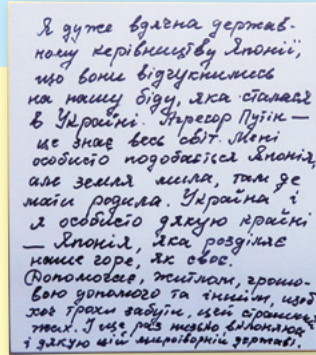 Я дуже вдячна держав-
ному керівництву Японії,
що вони відгукнились
на нашу біду, яка сталася
в Україні. Агресор Путін —
це знає весь світ. Мені
особисто подобається Японія,
але земля мила, там де
мати родила. Україна і
я особисто дякую країні
— Японія, яка розділяє
наше горе, як своє.
Допомогає, житлом, грошо-
вою допомого та іншим, щоб
хоч трохи забути, цей страшний
жах. І ще раз низько вклоняюсь
і дякую цій миротворній державі.